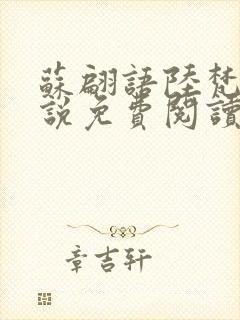 蘇翩語陸梵
說免費閱讀
章吉轩